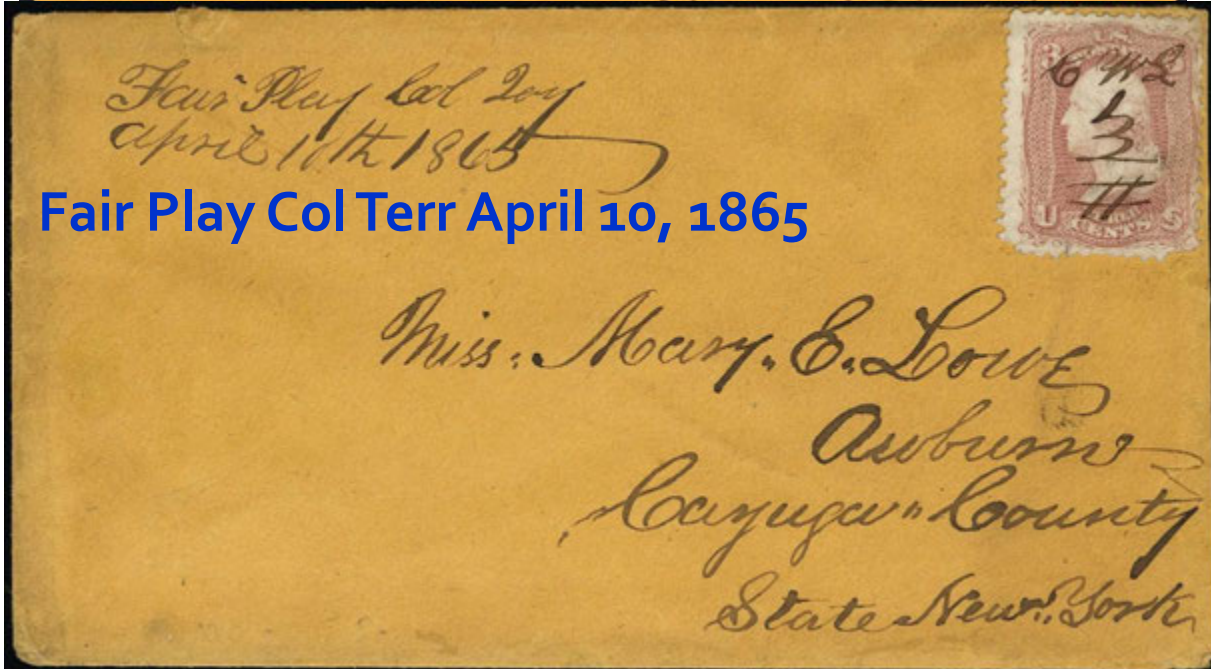 Fair Play Col Ter
April 10th 1865
Fair Play Col Terr April 10, 1865
Miss. Mary. E. Lowe
Auburn
Cayuga County
State New York
3
U S
CENTS